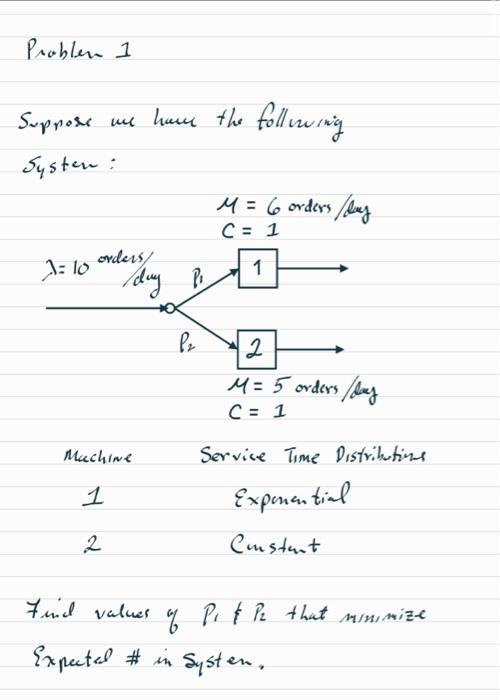 Problem 1
Suppose we have the following
System:
M = 6 orders/day
C = 1
λ = 10 orders/day
P1
1
P2
2
M = 5 orders/day
C = 1
Machine Service Time Distributions
1 Exponential
2 Constant
Find values of P1 & P2 that minimize
Expected # in System.